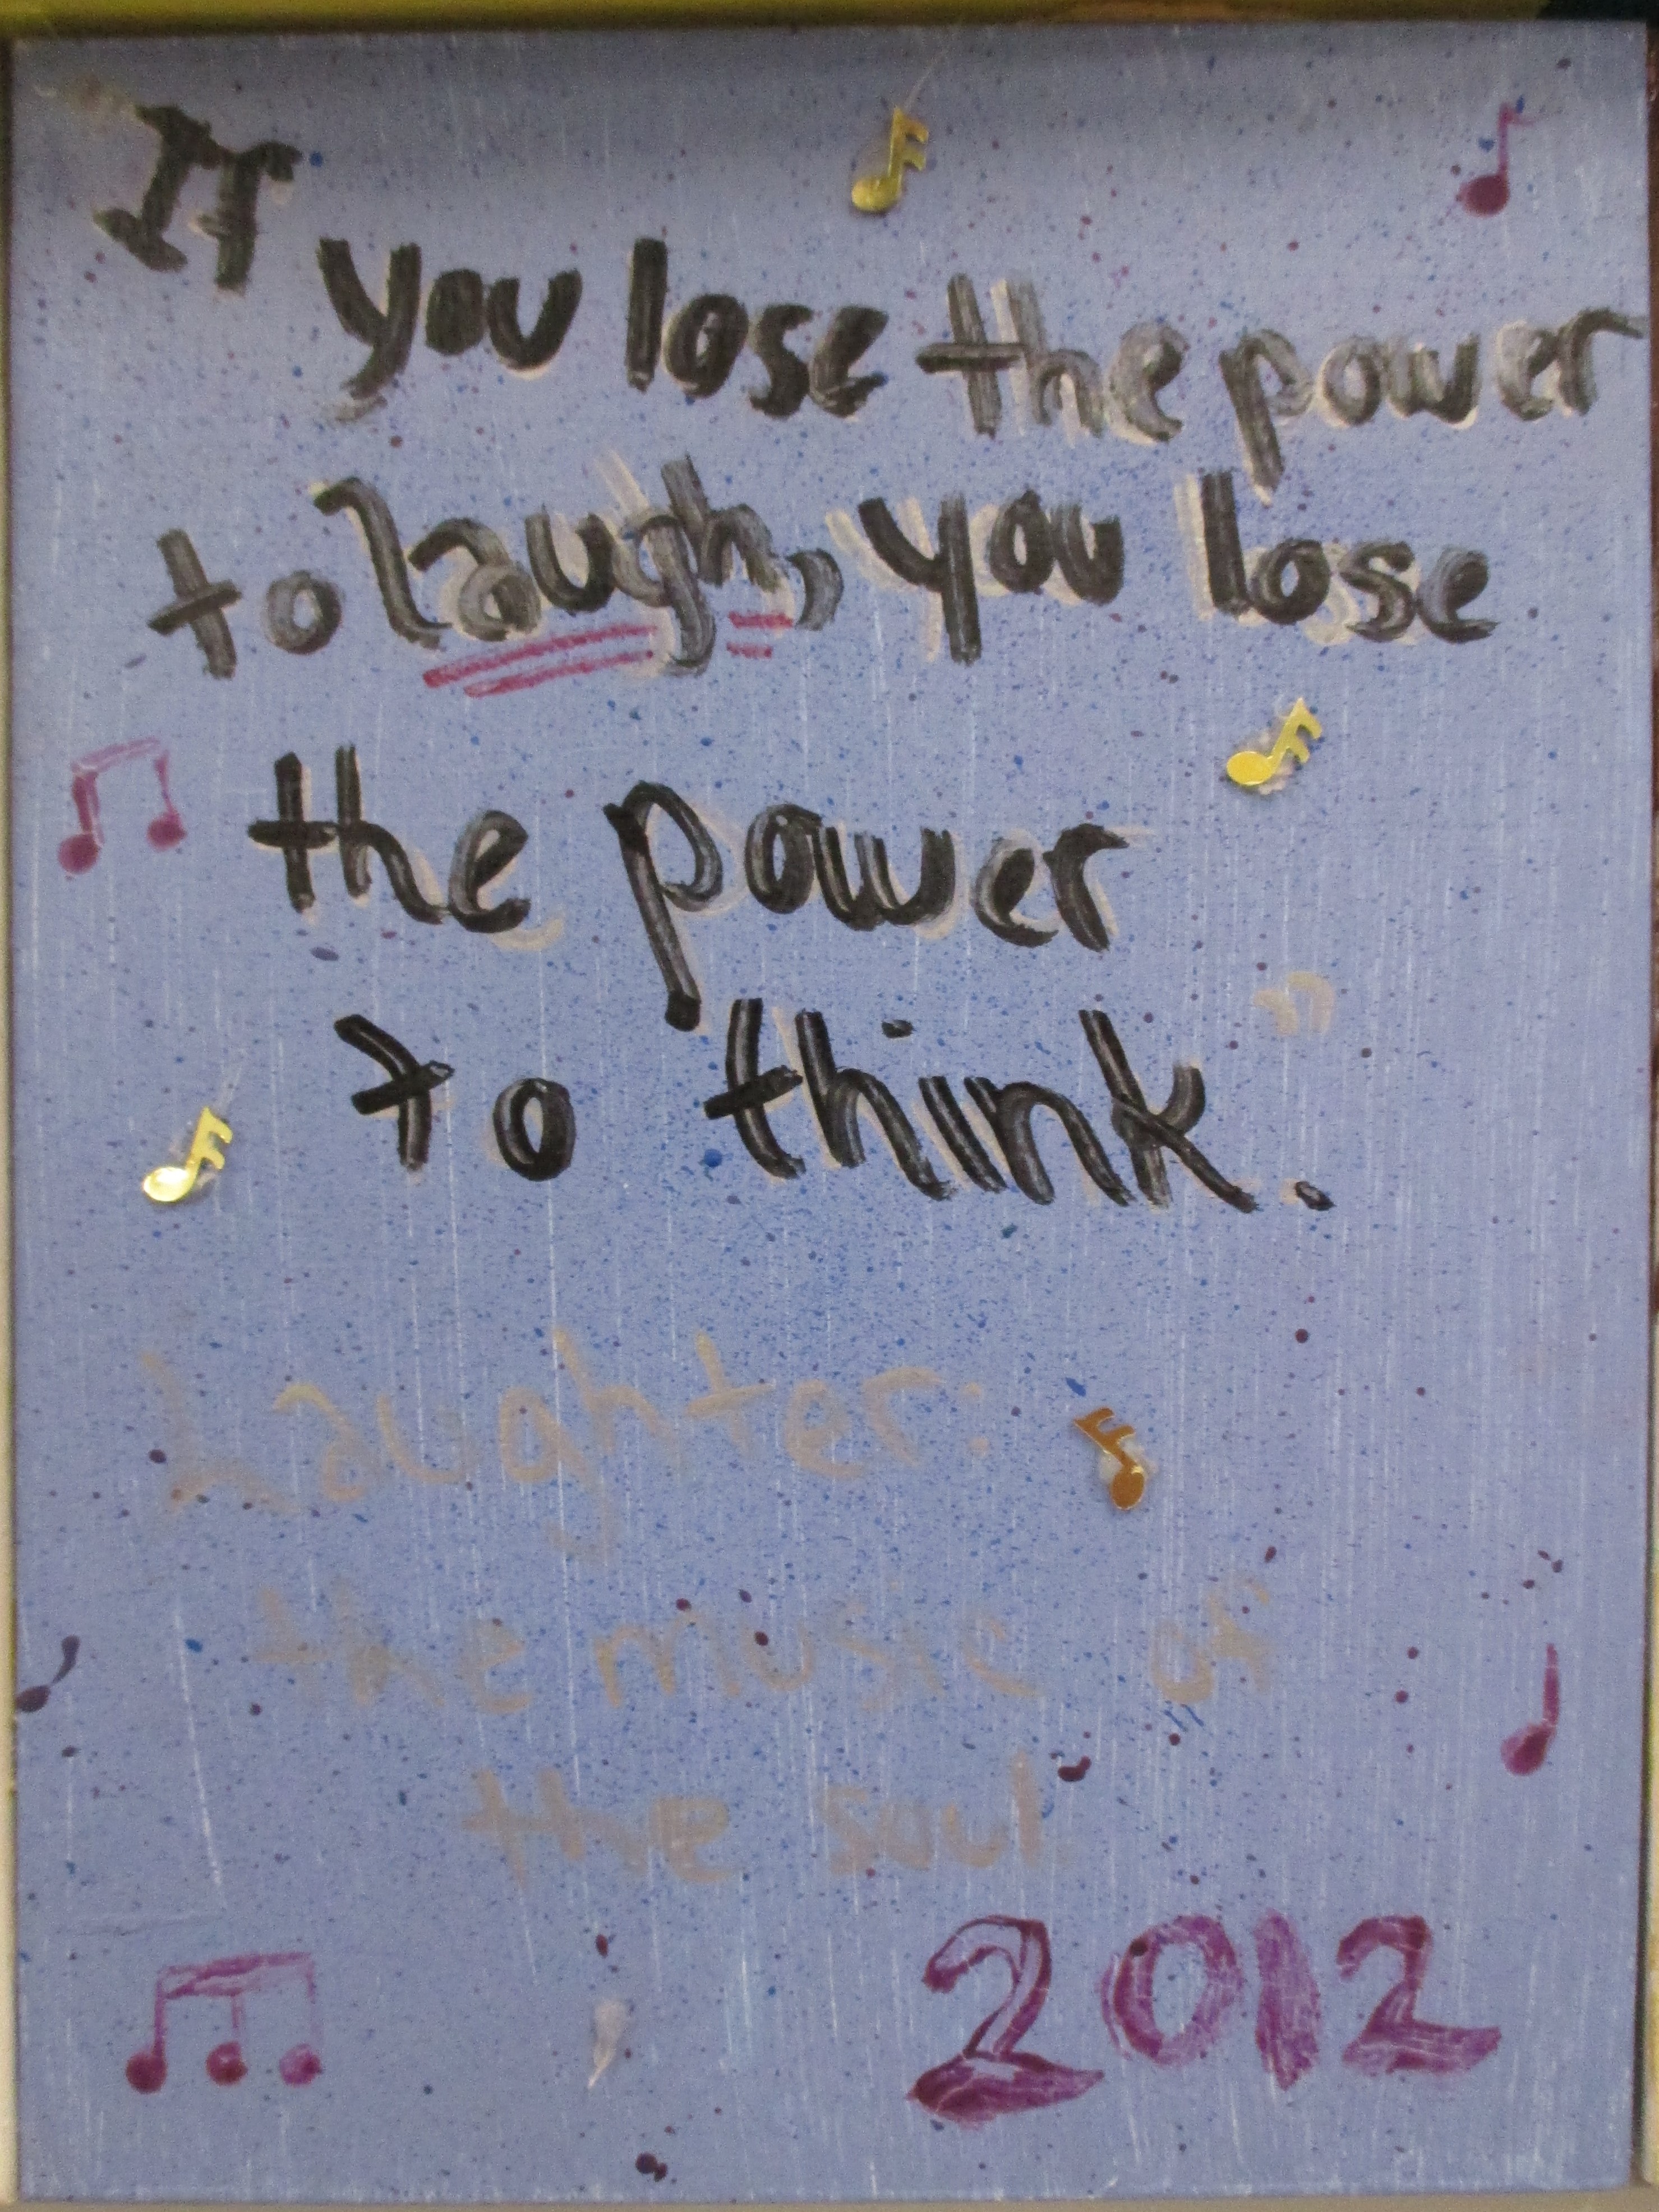 If
you lose the power
to laugh, you lose
the power
to think.
Laughter:
the music of
the soul
2012